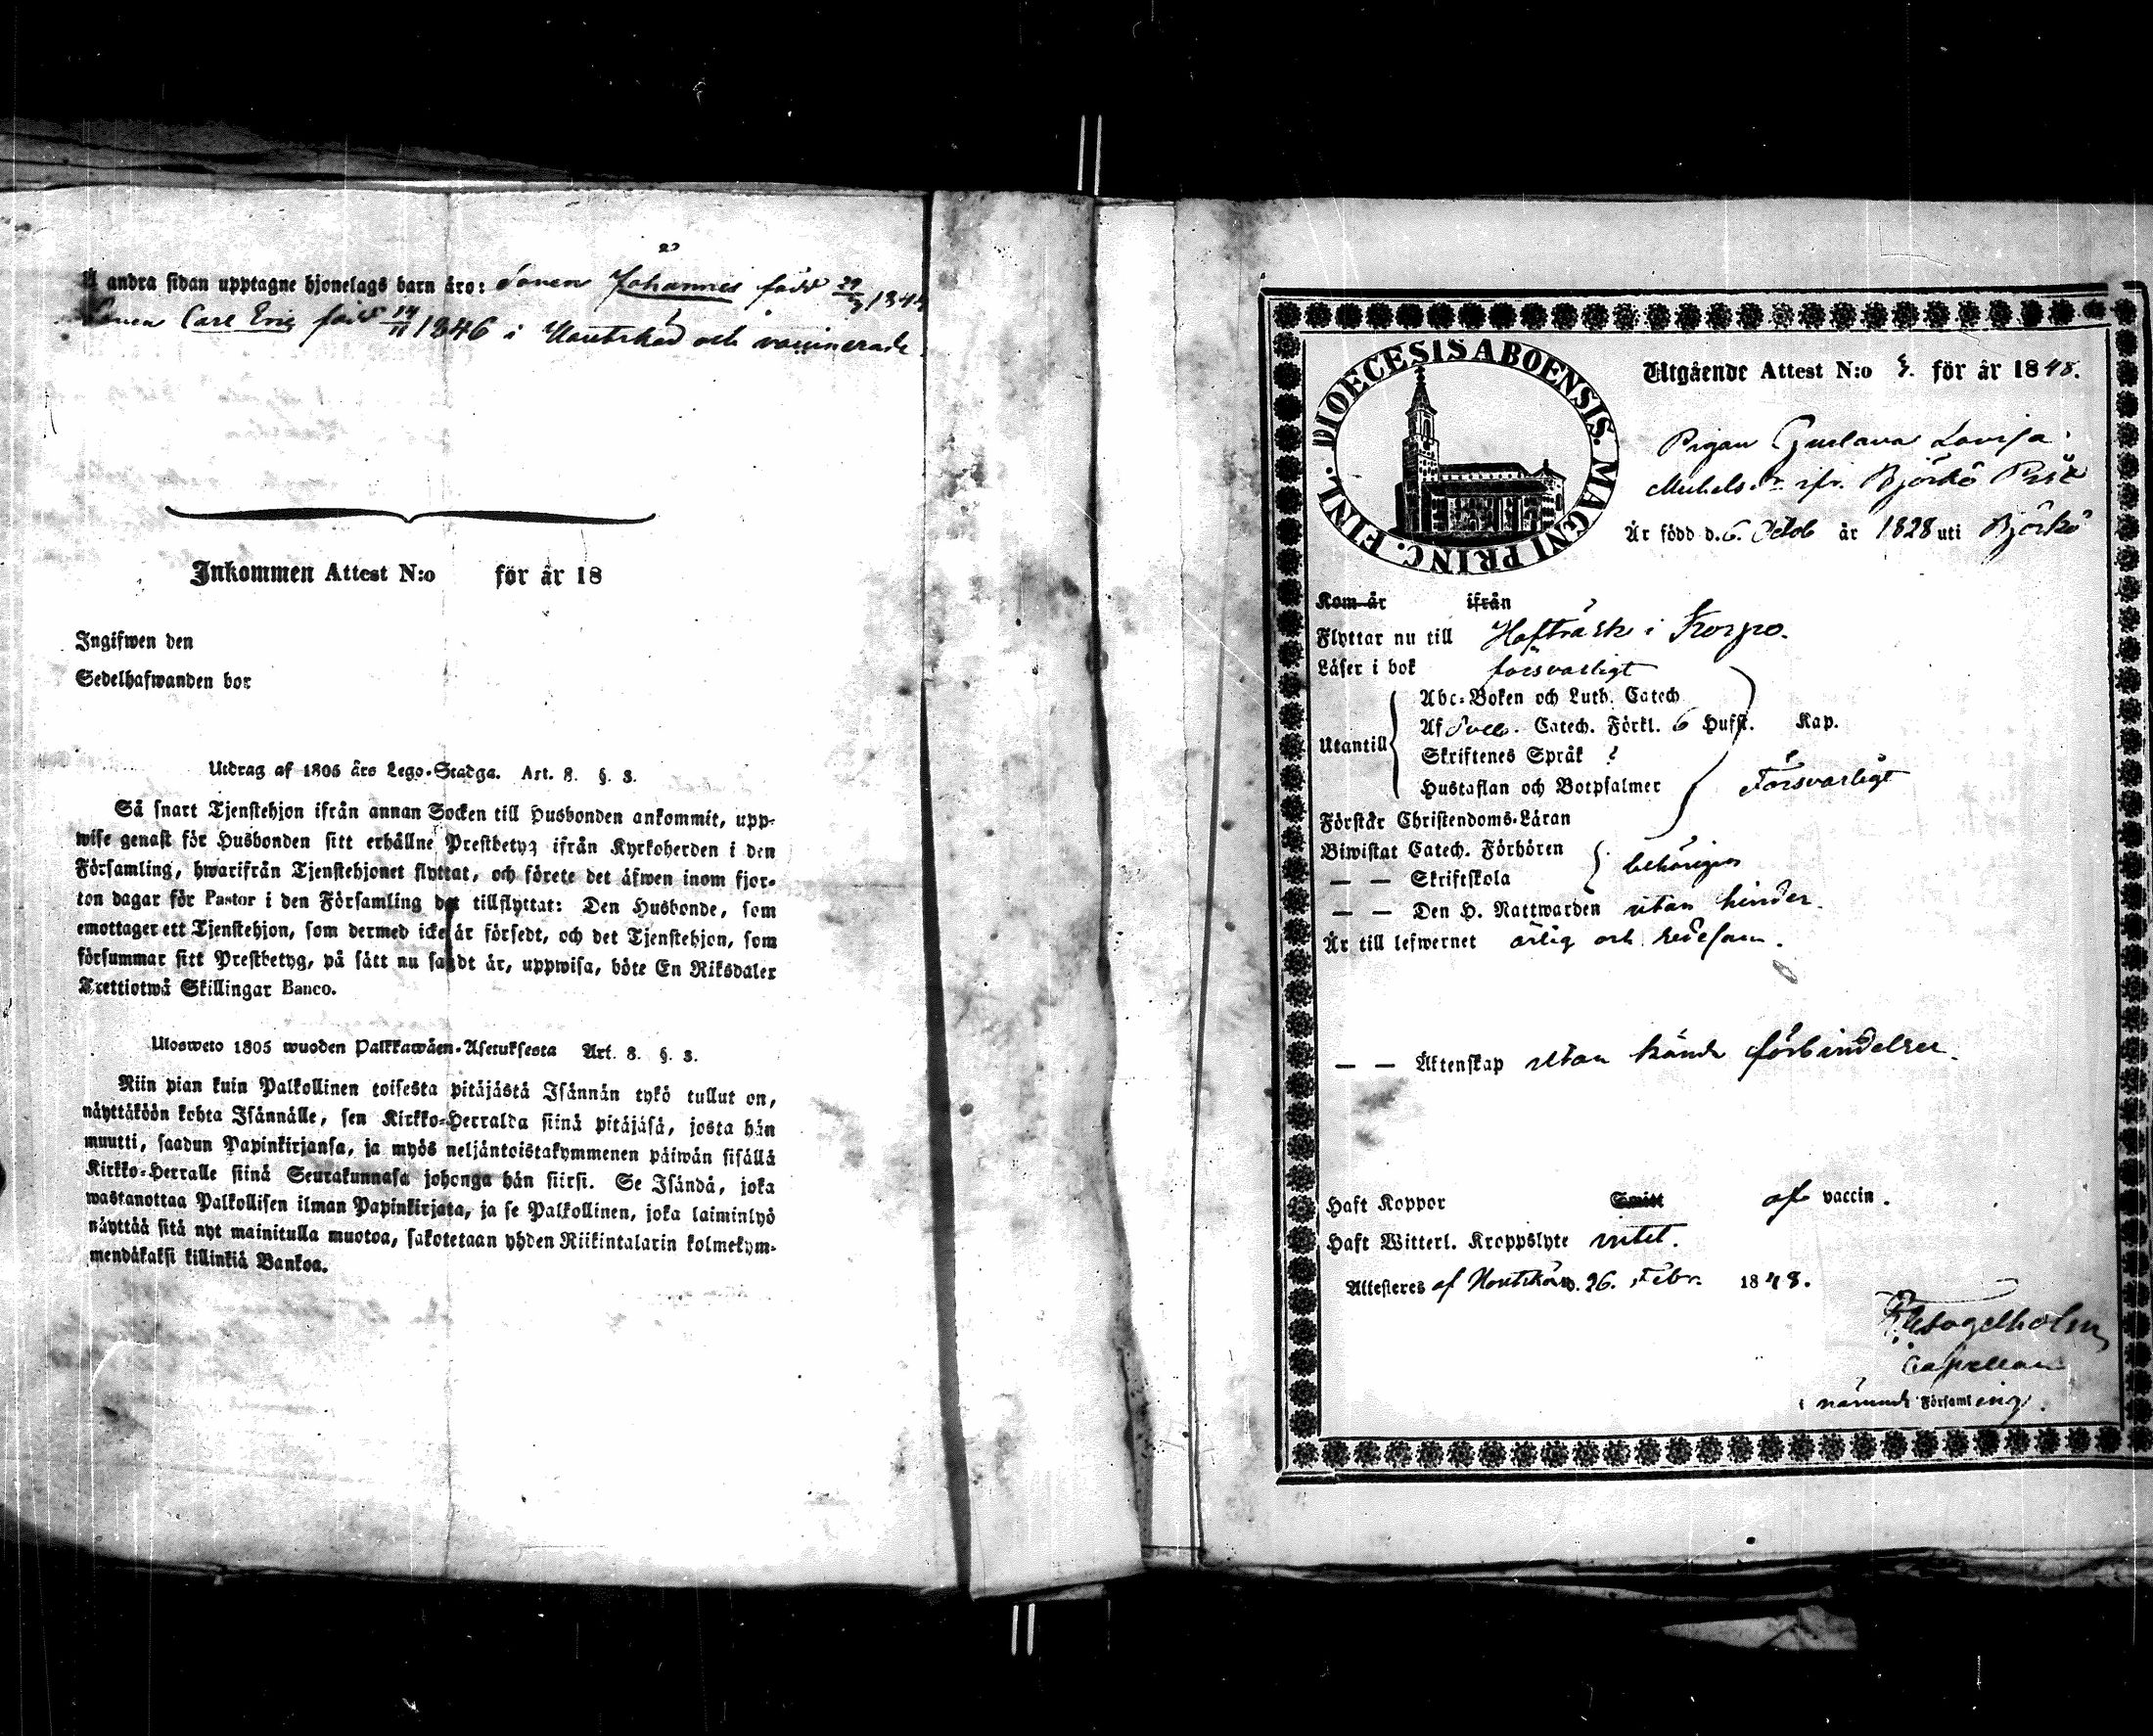 å andra sidan upptagne hjonelags barn äro: Sonen Johannes född 29/3 1844
Sonen Carl Eric född 14/11 1846 i Houtskär och vaccinerade.
Inkommen Attest N:o för år 18
Ingifwen den
Sedelhafwanden bor
Utdrag af 1805 års Lego-Stadga. Art. 8. §. 3.
Så snart Tjenstehjon ifrån annan Socken till Husbonden ankommit, upp-
wise genast för Husbonden sitt erhållne Prestbetyg ifrån Kyrkoherden i den
Församling, hwarifrån Tjenstehjonet flyttat, och förete det äfwen inom fjor-
ton dagar för Pastor i den Församling det tillflyttat: Den Husbonde, som
emottager ett Tjenstehjon, som dermed icke är försedt, och det Tjenstehjon, som
försummar sitt Prestbetyg, på sätt nu sagdt är, uppwisa, böte En Riksdaler
Trettiotwå Skillingar Banco.
Ulosweto 1805 wuoden Palkkawäen-Asetuksesta Art. 8. §. 3.
Niin pian kuin Palkollinen toisesta pitäjästä Isännän tykö tullut on,
näyttäköön kohta Isännälle, sen Kirkko-Herralda siinä pitäjäsä, josta hän
muutti, saadun Papinkirjansa, ja myös neljäntoistakymmenen päiwän sisällä
Kirkko-Herralle siinä Seurakunnasa johonga hän siirsi. Se Isändä, joka
wastanottaa Palkollisen ilman Papinkirjata, ja se Palkollinen, joka laiminlyö
näyttää sitä nyt mainitulla muotoa, sakotetaan yhden Riikintalarin kolmekym-
mendäkaksi killinkiä Bankoa.
DIOECESIS ABOENSIS. MAGNI PRINC. FINL.
Utgående Attest N:o för år 1848.
Pigan Gustava Lovisa
Michelsdr ifr. Björkö
Är född d. 6. Octob år 1828 uti Björkö
Kom år ifrån
Flyttar nu till Hafträsk i Korpo.
Läser i bok försvarligt
Abc-Boken och Luth. Catech
Af Sveb. Catech. Förkl. 6 Hufst. Kap.
Utantill
Skriftenes Språk
Hustaflan och Botpsalmer
Försvarligt
Förstår Christendoms-Läran
Biwistat Catech. Förhören
behörigen
— — Skriftskola
— — Den H. Nattwarden utan hinder.
Är till lefwernet ärlig och redesam.
— — Äktenskap utan kända förbindelser.
Haft Koppor Smitt af vaccin.
Haft Witterl. Kroppslyte intet.
Attesteres af Houtskär d. 26. Febr. 1848.
Capellan
i nämnde Församling.